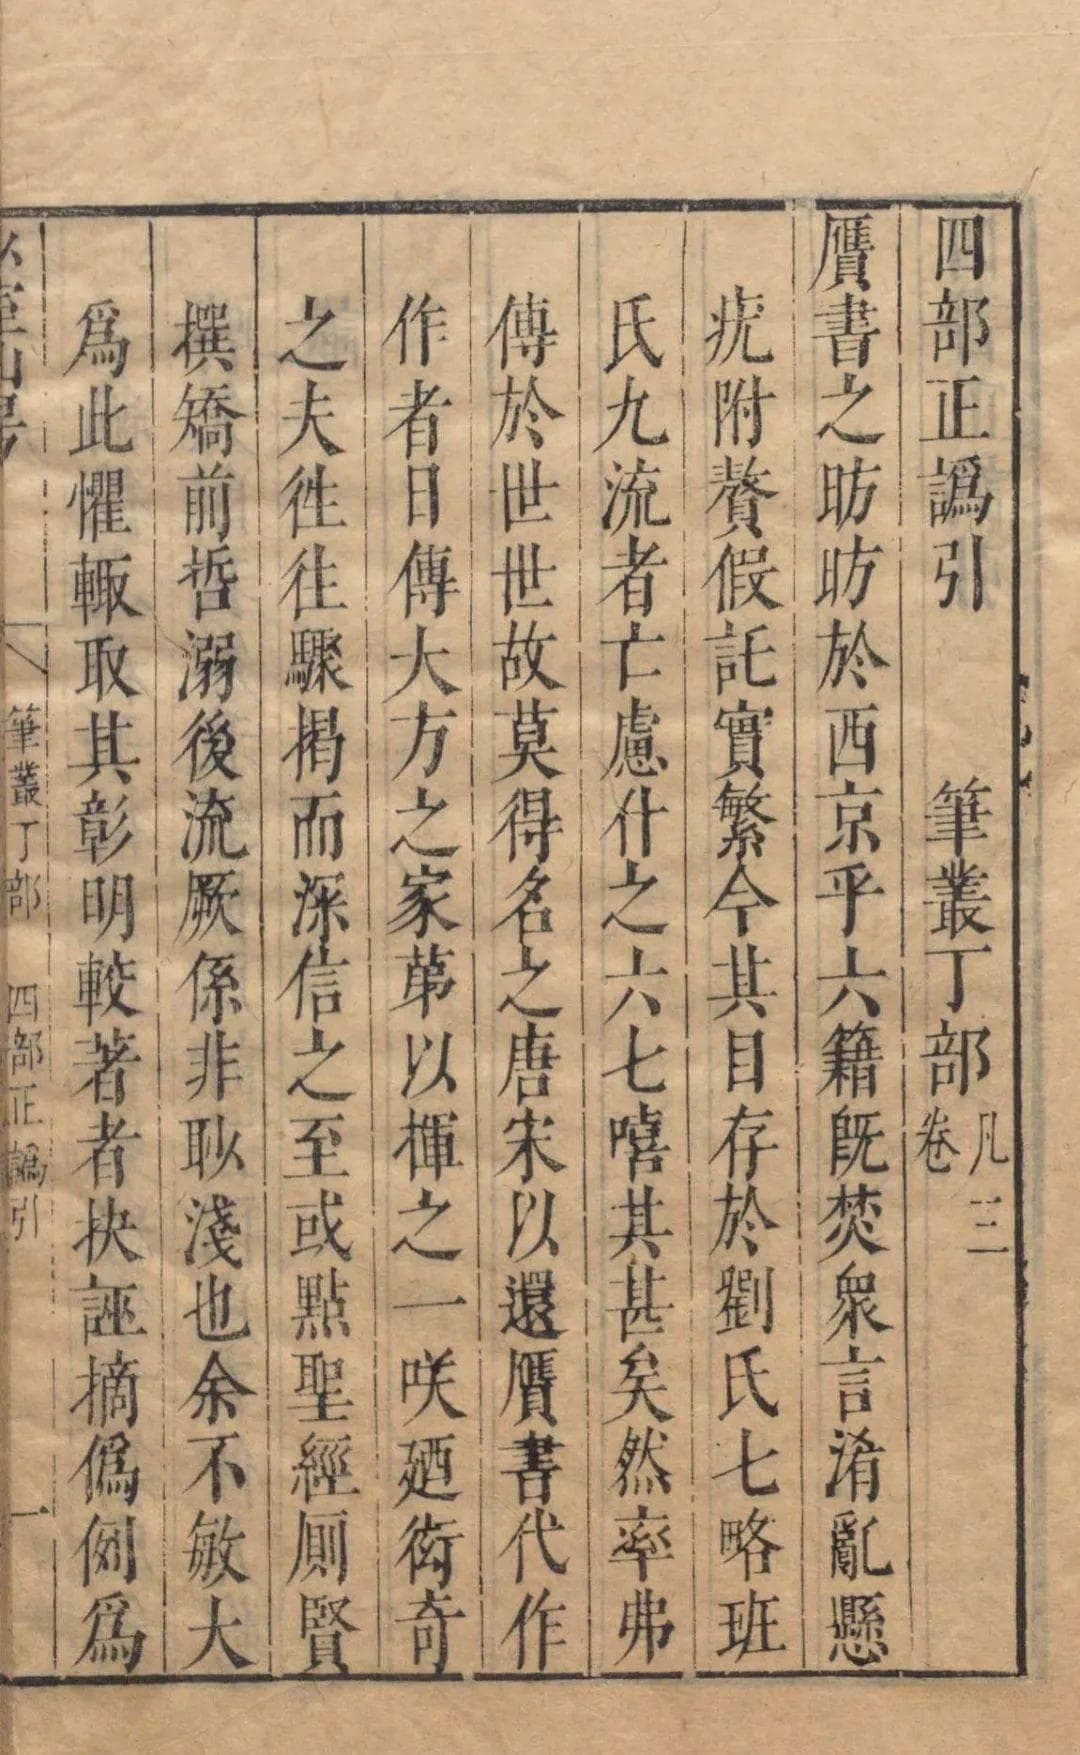 四部正譌引　筆叢丁部凡三卷
贋書之昉昉於西京乎六籍旣焚衆言淆亂懸
疣附贅假託實繁今其目存於劉氏七略班
氏九流者亡慮什之六七嘻其甚矣然率弗
傳於世世故莫得名之唐宋以還贋書代作
作者日傳大方之家第以揮之一咲廼衒奇
之夫徃往驟揭而深信之至或點聖經厠賢
撰矯前哲溺後流厥係非眇淺也余不敏大
爲此懼輙取其彰明較著者抉誣摘僞例爲
筆叢丁部　四部正譌引　一